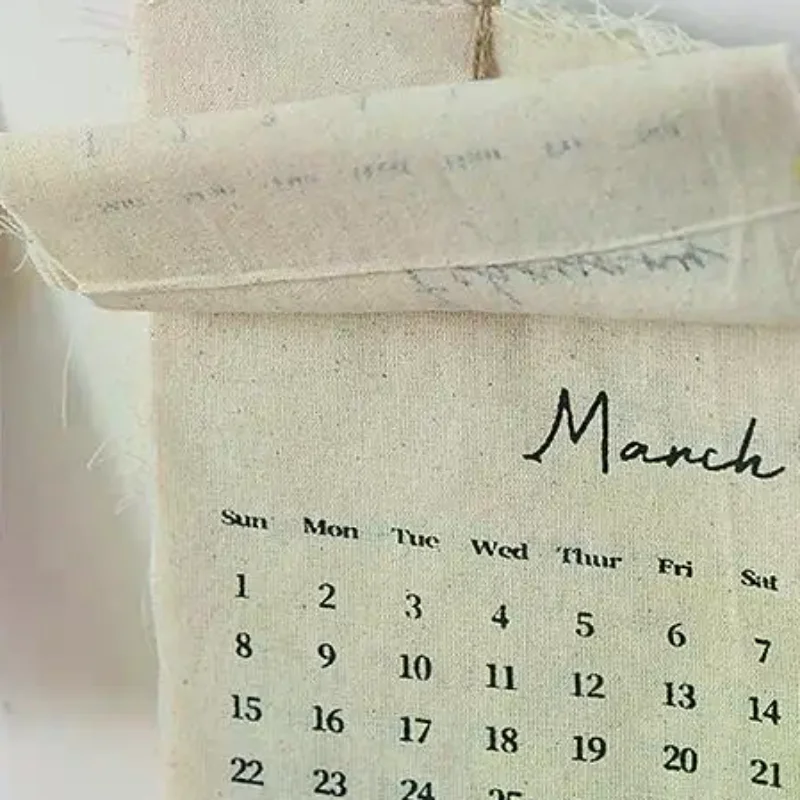 March
Sun Mon Tue Wed Thur Fri Sat
1 2 3 4 5 6 7
8 9 10 11 12 13 14
15 16 17 18 19 20 21
22 23 24 25